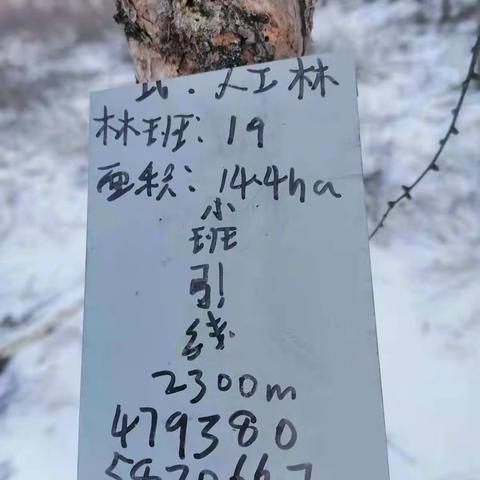 : 人工林
林班: 19
面积: 14.4ha
小
班
引
线
2300m
479380
5820667